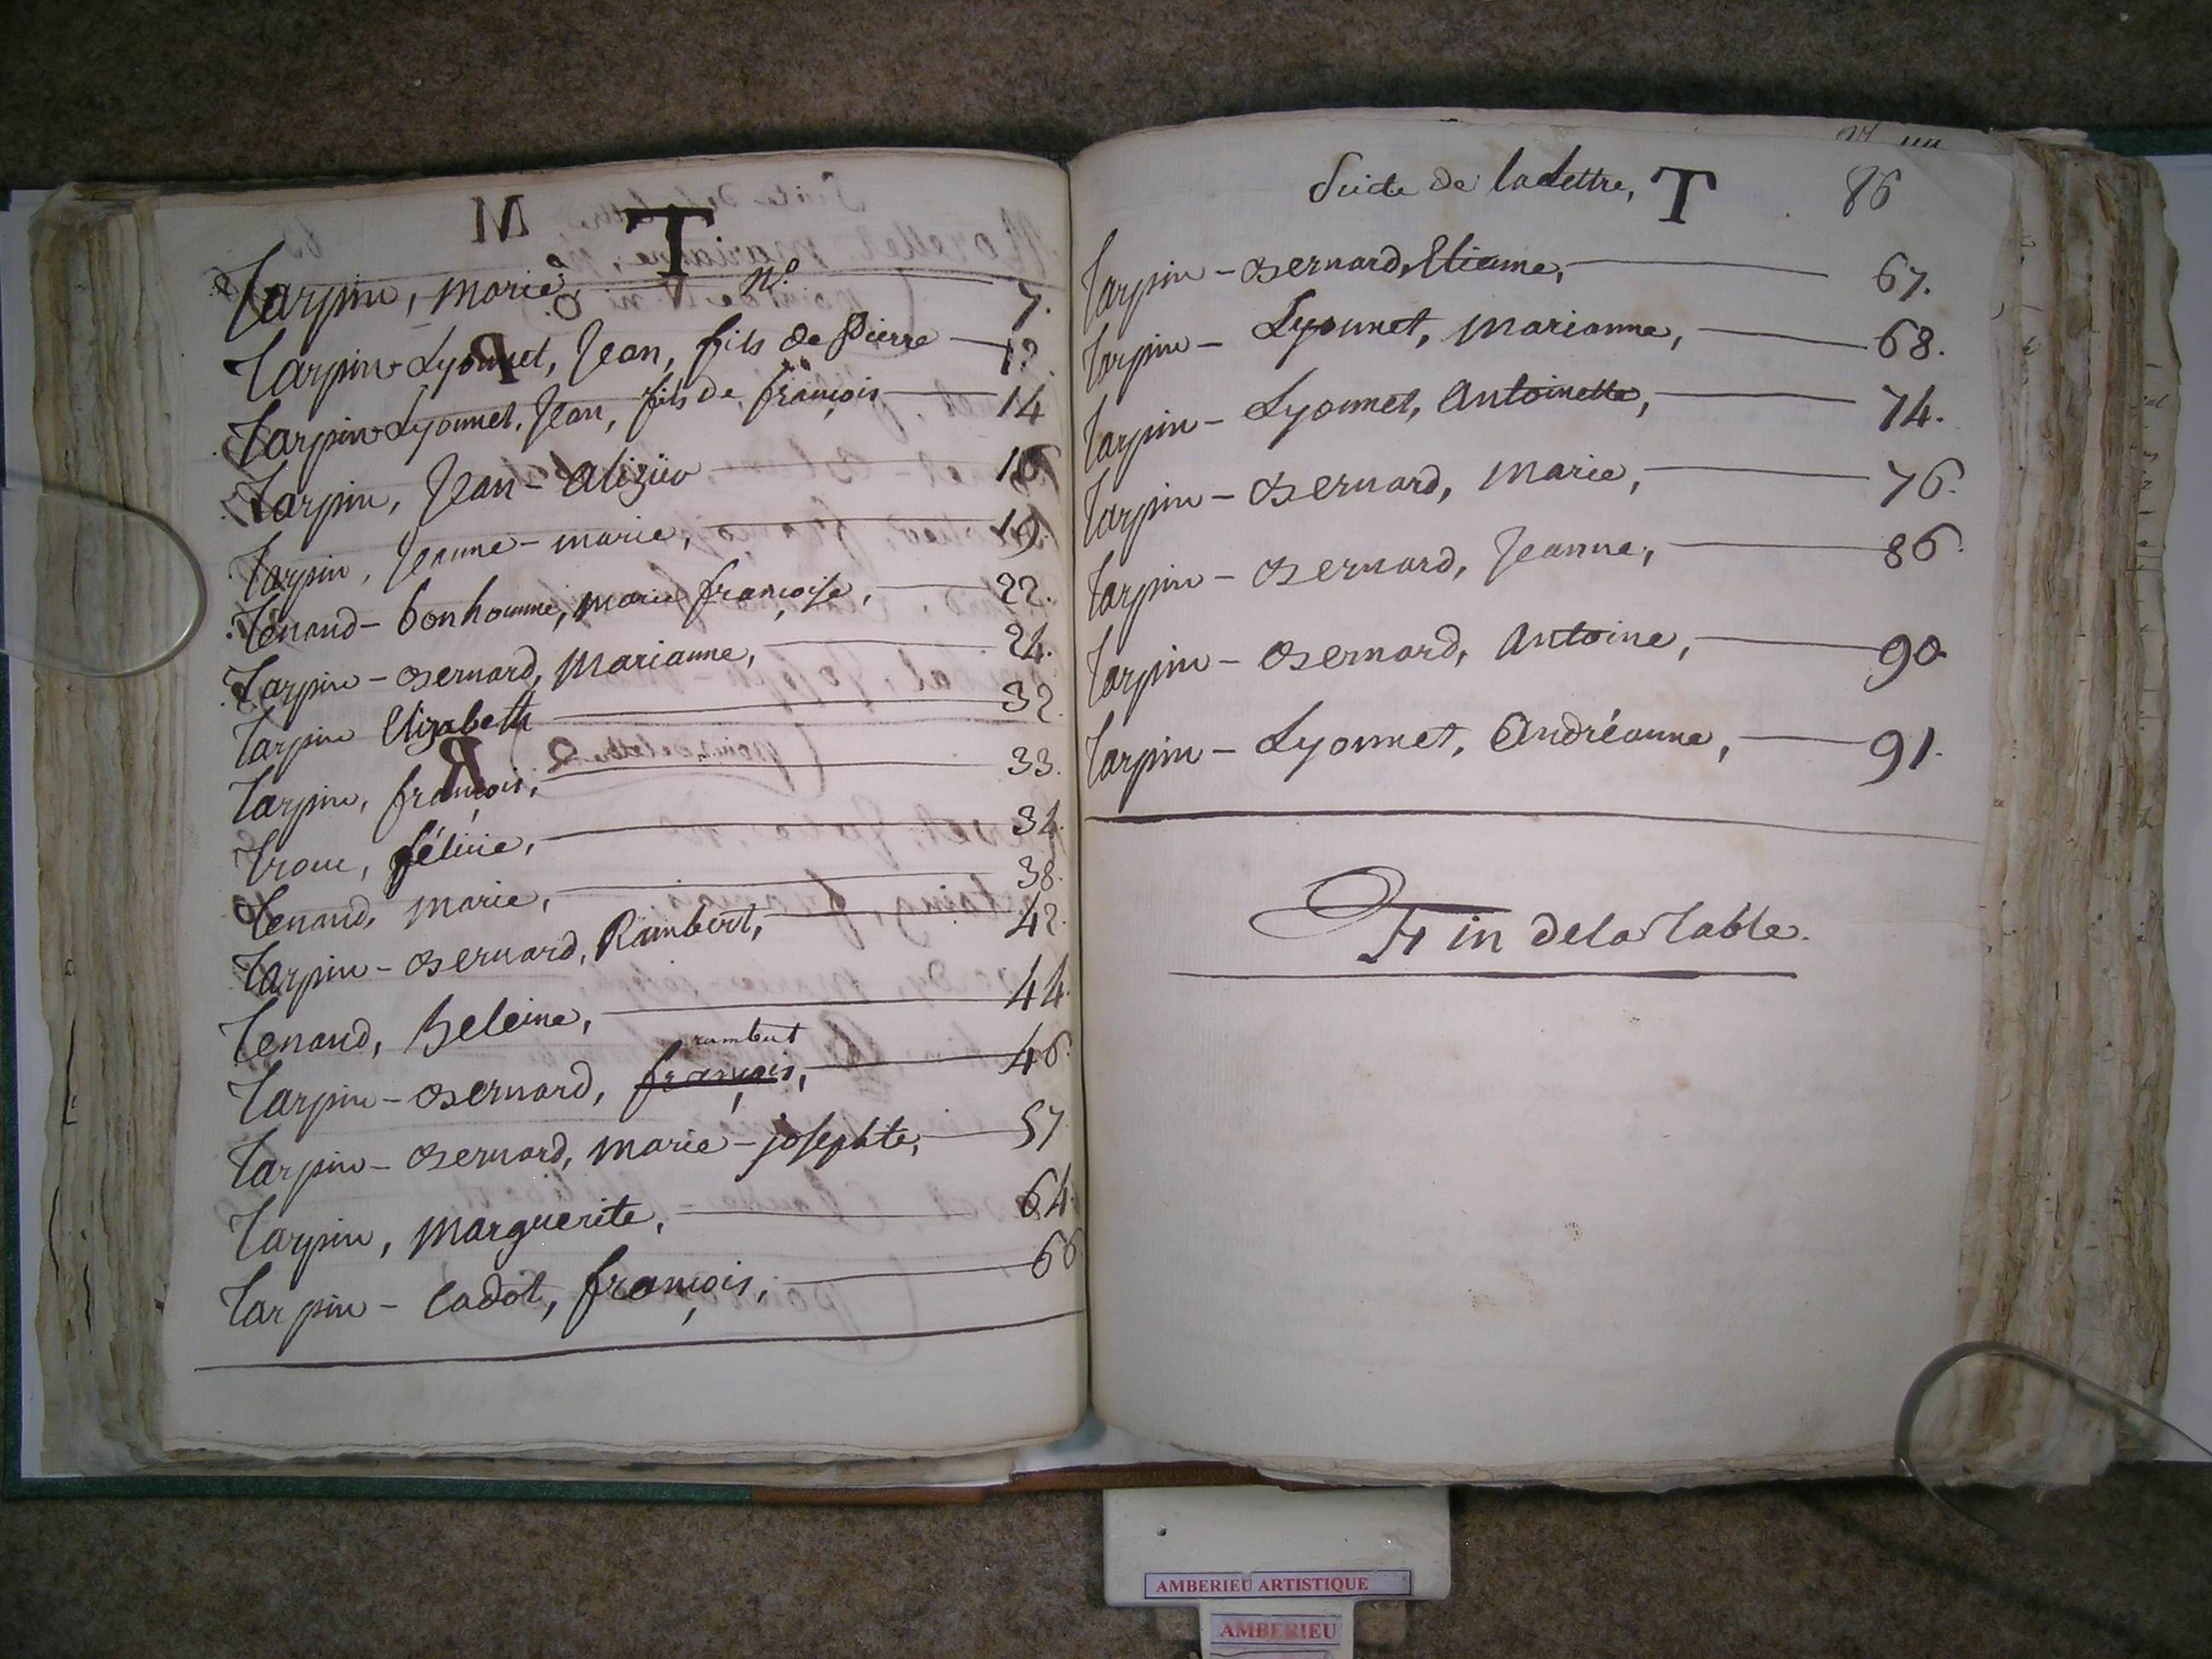 T
Tarpin, Marie, N.º 7.
Tarpin-Lyonnet, Jean, fils de Pierre 12
Tarpin-Lyonnet, Jean, fils de françois 14
Tarpin, Jean- 16
Tarpin, Jeanne-marie, 19
Tenand-bonhomme, marie françoise, 22.
Tarpin-Bernard, Marianne, 24.
Tarpin Elizabeth 32.
Tarpin, françois, 33.
34.
Tenand, Marie, 38.
Tarpin-Bernard, Rambert, 42.
Tenand, heleine, 44.
rambert
Tarpin-Bernard, françois, 46.
Tarpin-Bernard, Marie-josephte, 57
Tarpin, Marguerite, 64.
Tarpin-Cadot, françois, 66
Suite de la Lettre, T 86
Tarpin-Bernard, Etienne, 67.
Tarpin-Lyonnet, Marianne, 68.
Tarpin-Lyonnet, Antoinette, 74.
Tarpin-Bernard, Marie, 76.
Tarpin-Bernard, Jeanne, 86.
Tarpin-Bernard, Antoine, 90
Tarpin-Lyonnet, Andréanne, 91.
Fin de la Table.
AMBERIEU ARTISTIQUE
AMBERIEU